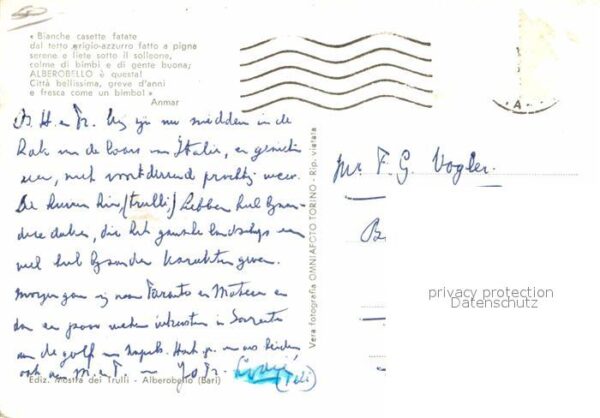 « Bianche casette fatate
dal tetto grigio-azzurro fatto a pigna
serene e liete sotto il solleone,
colme di bimbi e di gente buona;
ALBEROBELLO è questa!
Città bellissima, greve d'anni
e fresca come un bimbo! »
Anmar
B. H. en Fr. Wij zijn nu midden in de
hak van de laars van Italie, en genieten
zeer, met voortdurend prachtig weer.
De huizen hier (trulli) hebben heel bijzon-
dere daken, die het gansche landschap een
heel bijzonder karakter geven.
Morgen gaan wij naar Taranto en Matera en
dan een paar weken uitrusten in Sorrento
aan de golf van Napels. Hart. gr. van ons beiden
ook aan M. en T.
Ediz. Mostra dei Trulli - Alberobello (Bari)
Vera fotografia OMNIAFOTO TORINO - Rip. vietata
A
Mr F. G. Vogler.
privacy protection
Datenschutz